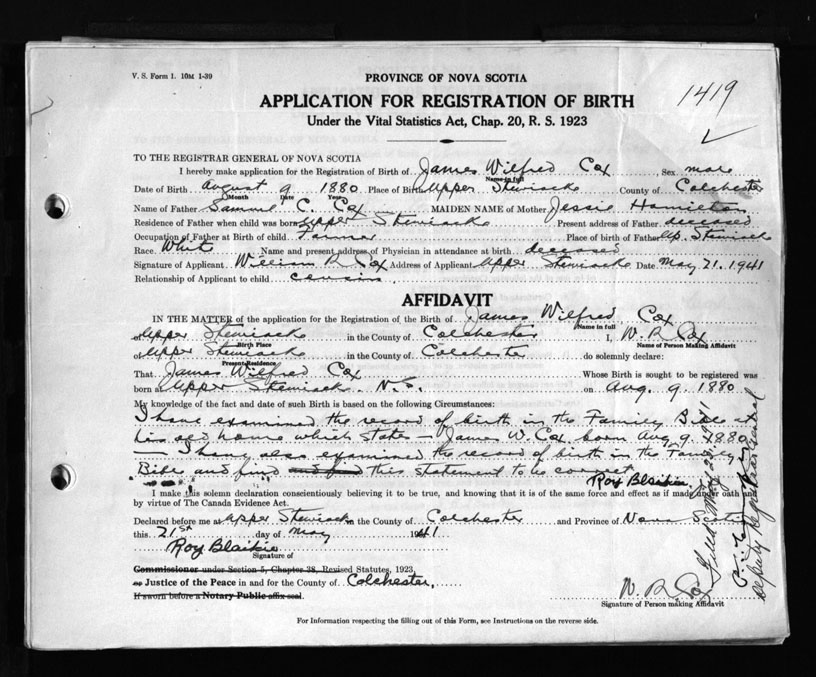 V. S. Form 1. 10M 1-39
PROVINCE OF NOVA SCOTIA
1419
APPLICATION FOR REGISTRATION OF BIRTH
Under the Vital Statistics Act, Chap. 20, R. S. 1923
TO THE REGISTRAR GENERAL OF NOVA SCOTIA
I hereby make application for the Registration of Birth of James Wilfred Cox Sex male
Name in full
Date of Birth August 9 1880 Place of Birth Upper Stewiacke County of Colchester
Month Date Year
Name of Father Samuel C. Cox MAIDEN NAME of Mother Jessie Hamilton
Residence of Father when child was born Upper Stewiacke Present address of Father deceased
Occupation of Father at Birth of child Farmer Place of birth of Father Up. Stewiacke
Race White Name and present address of Physician in attendance at birth deceased
Signature of Applicant William R Cox Address of Applicant Upper Stewiacke Date May 21. 1941
Relationship of Applicant to child cousin
AFFIDAVIT
IN THE MATTER of the application for the Registration of the Birth of James Wilfred Cox
Name in full
of Upper Stewiacke in the County of Colchester I, W. R. Cox
Birth Place Name of Person Making Affidavit
of Upper Stewiacke in the County of Colchester do solemnly declare:
Present Residence
That James Wilfred Cox Whose Birth is sought to be registered was
born at Upper Stewiacke N.S. on Aug. 9 1880
My knowledge of the fact and date of such Birth is based on the following Circumstances:
I have examined the record of birth in the Family Bible at
his old home which states - James W. Cox born Aug 9. 1880
- I have also examined the record of birth in the Family
Bible and find this statement to be correct
Roy Blaikie
I make this solemn declaration conscientiously believing it to be true, and knowing that it is of the same force and effect as if made under oath and
by virtue of The Canada Evidence Act.
Declared before me at Upper Stewiacke in the County of Colchester and Province of Nova Scotia
this 21st day of May 1941
Roy Blaikie
Signature of
Commissioner under Section 5, Chapter 38, Revised Statutes, 1923,
or Justice of the Peace in and for the County of Colchester.
If sworn before a Notary Public affix seal.
W. R. Cox
Signature of Person making Affidavit
Filed May 1941
Deputy Registrar General
For Information respecting the filling out of this Form, see Instructions on the reverse side.